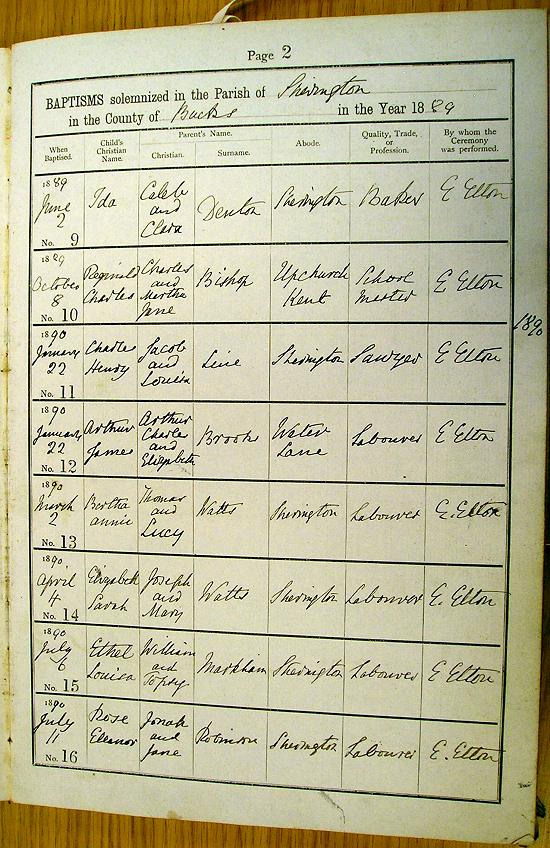 Page 2
BAPTISMS solemnized in the Parish of Sherington
in the County of Bucks in the Year 1889
When Baptised. Child's Christian Name. Parent's Name. Christian. Surname. Abode. Quality, Trade, or Profession. By whom the Ceremony was performed.
1889 June 2 No. 9 Ida Caleb and Clara Denton Sherington Baker E Elton
1889 October 8 No. 10 Reginald Charles Charles and Martha Jane Bishop Upchurch Kent School Master E Elton
1890
1890 January 22 No. 11 Charles Henry Jacob and Louisa Line Sherington Sawyer E Elton
1890 January 22 No. 12 Arthur James Arthur Charles and Elizabeth Brooks Water Lane Labourer E Elton
1890 March 2 No. 13 Bertha annie Thomas and Lucy Watts Sherington Labourer E. Elton
1890 April 4 No. 14 Elizabeth Sarah Joseph and Mary Watts Sherington Labourer E. Elton
1890 July 6 No. 15 Ethel Louisa William and Topsy Markham Sherington Labourer E Elton
1890 July 11 No. 16 Rose Eleanor Jonah and Jane Robinson Sherington Labourer E. Elton